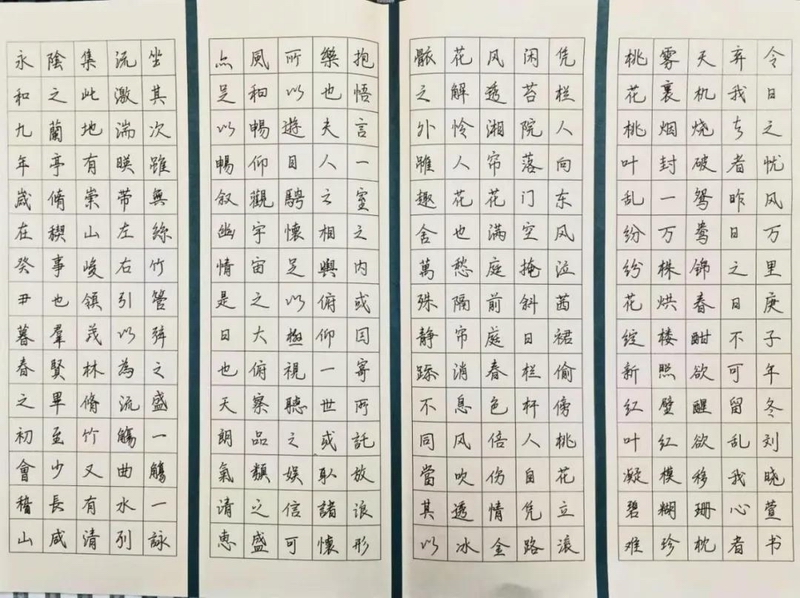 永和九年歲在癸丑暮春之初會稽山
陰之蘭亭脩禊事也羣賢畢至少長咸
集此地有崇山峻領茂林脩竹又有清
流激湍暎帶左右引以為流觴曲水列
坐其次雖無絲竹管弦之盛一觴一詠
点足以暢叙幽情是日也天朗氣清惠
風和暢仰觀宇宙之大俯察品類之盛
所以遊目騁懷足以極視聽之娛信可
樂也夫人之相與俯仰一世或取諸懷
抱悟言一室之內或因寄所託放浪形
骸之外雖趣舍萬殊靜躁不同當其以
花解怜人花也愁隔帘消息风吹透冰
风透湘帘花满庭前庭春色倍伤情金
闲苔院落门空掩斜日栏杆人自凭路
凭栏人向东风泣茜裙偷傍桃花立滚
桃花桃叶乱纷纷花绽新红叶凝碧难
雾裹烟封一万株烘楼照壁红模糊珍
天机烧破鸳鸯锦春酣欲醒欲移珊枕
弃我去者昨日之日不可留乱我心者
今日之忧风万里庚子年冬刘晓萱书